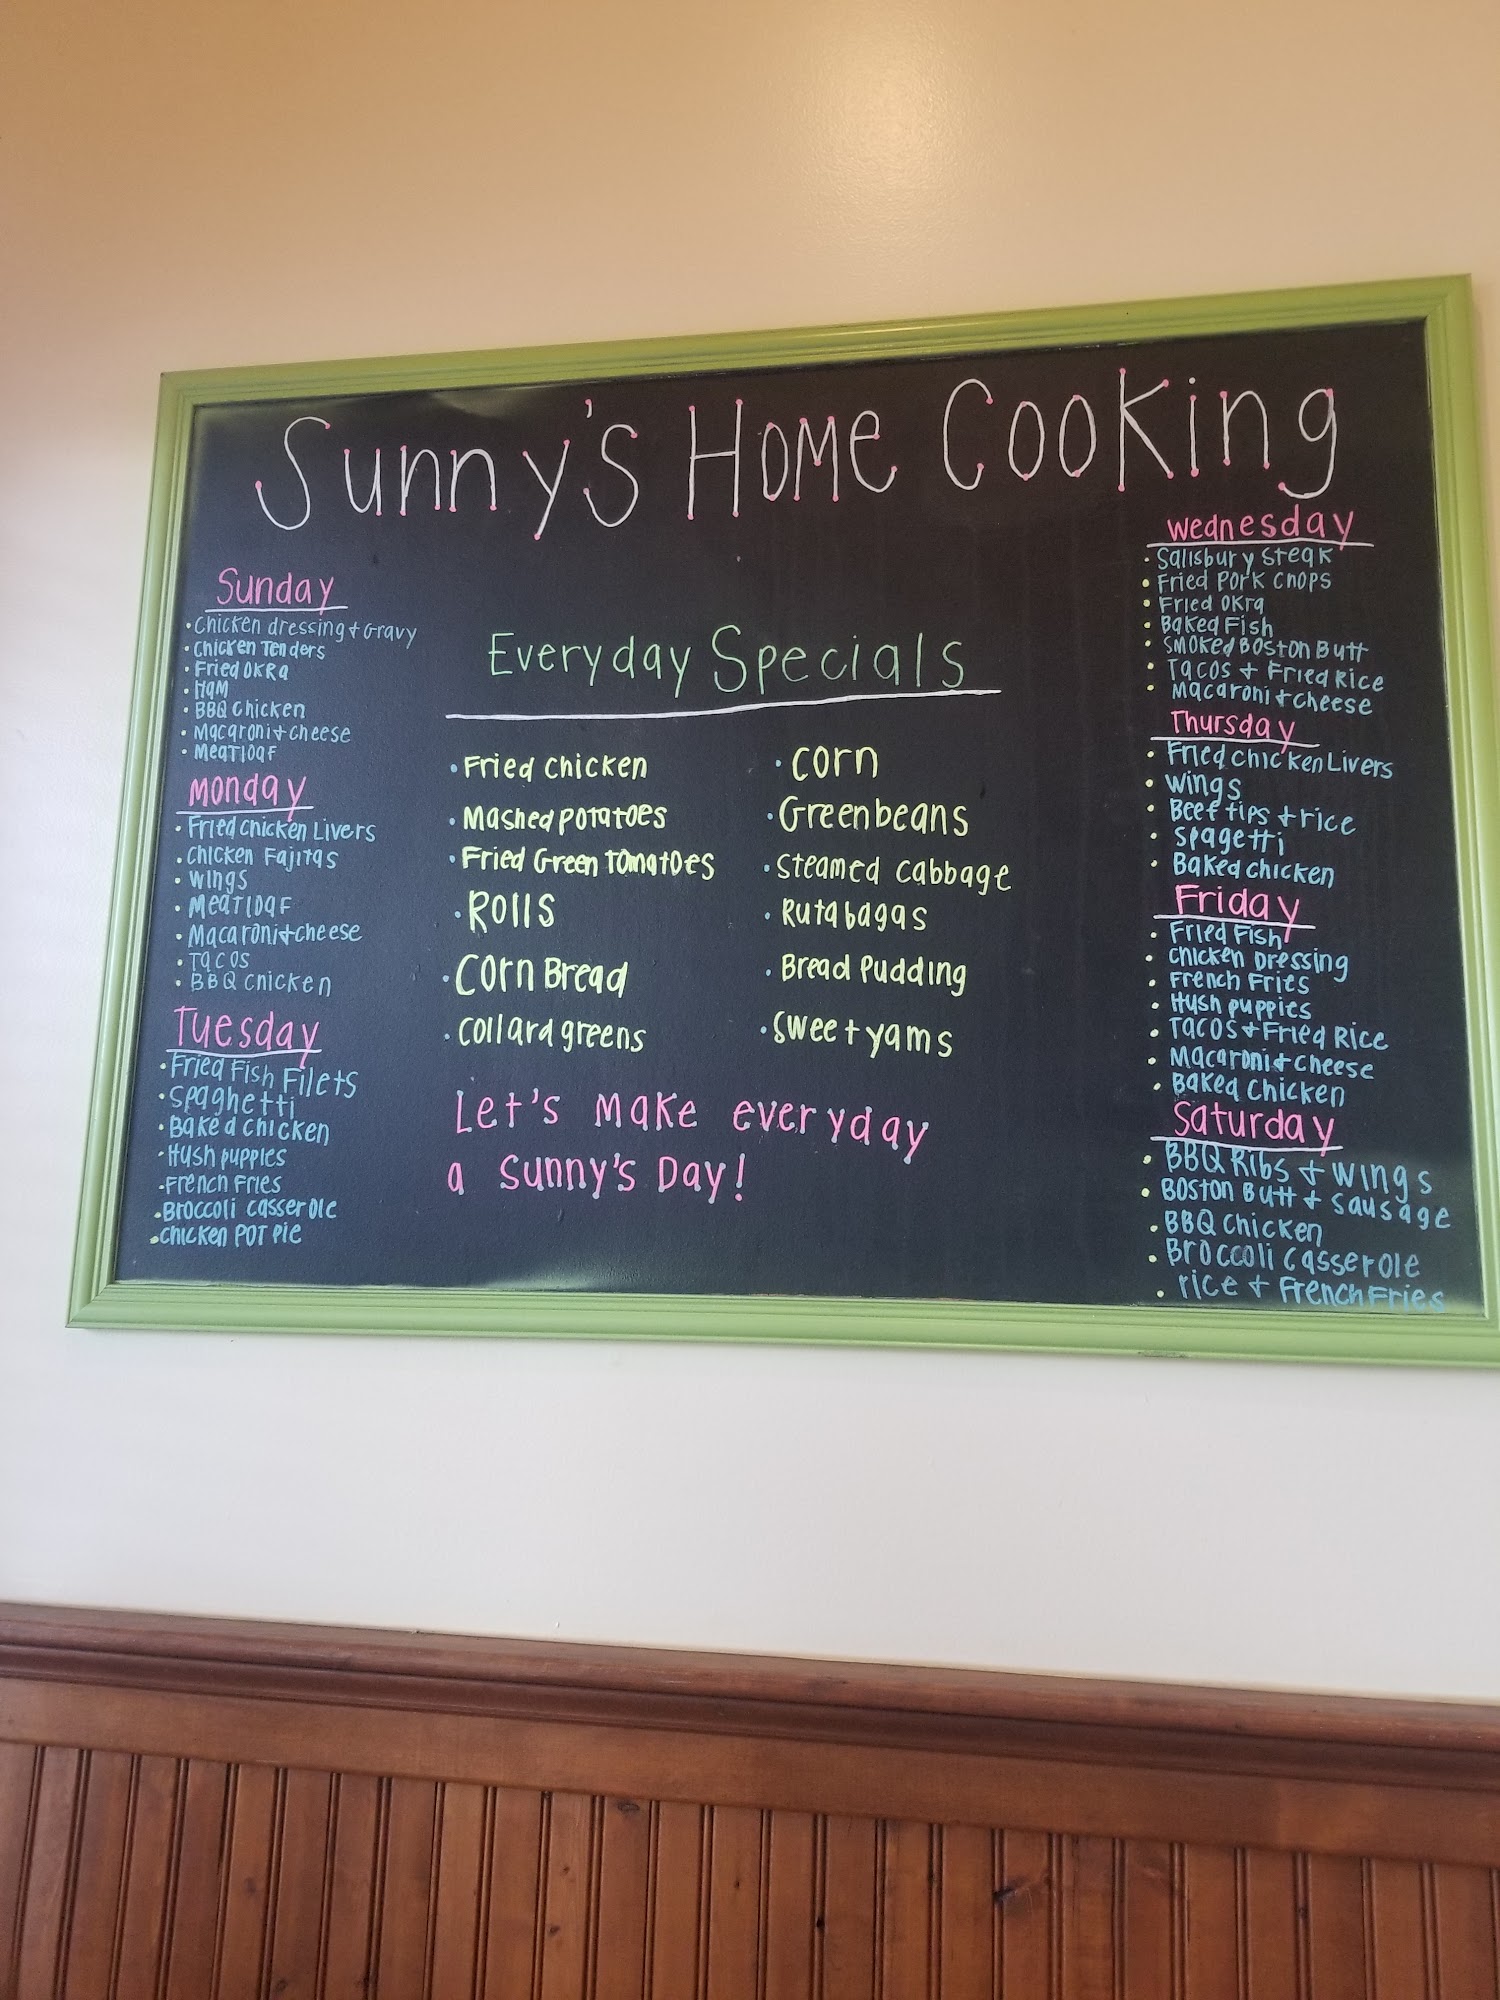 Sunny's Home Cooking
Sunday
• Chicken dressing + Gravy
• Chicken Tenders
• Fried Okra
• Ham
• BBQ Chicken
• Macaroni + cheese
• Meatloaf
Monday
• Fried Chicken Livers
• Chicken Fajitas
• Wings
• Meatloaf
• Macaroni + cheese
• Tacos
• BBQ Chicken
Tuesday
• Fried Fish Filets
• Spaghetti
• Baked Chicken
• Hush puppies
• French Fries
• Broccoli Casserole
• Chicken Pot Pie
Everyday Specials
• Fried Chicken
• Mashed Potatoes
• Fried Green Tomatoes
• Rolls
• Corn Bread
• Collard greens
• Corn
• Greenbeans
• Steamed Cabbage
• Rutabagas
• Bread Pudding
• Sweet yams
Let's make everyday
a Sunny's Day!
Wednesday
• Salisbury Steak
• Fried Pork Chops
• Fried Okra
• Baked Fish
• Smoked Boston Butt
• Tacos + Fried Rice
• Macaroni + cheese
Thursday
• Fried Chicken Livers
• Wings
• Beef tips + rice
• Spagetti
• Baked Chicken
Friday
• Fried Fish
• Chicken Dressing
• French Fries
• Hush puppies
• Tacos + Fried Rice
• Macaroni + cheese
• Baked Chicken
Saturday
• BBQ Ribs + Wings
• Boston Butt + Sausage
• BBQ Chicken
• Broccoli Casserole
• rice + French Fries